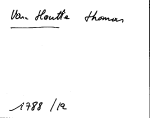 Van Houtte Thomas
1788 / 12